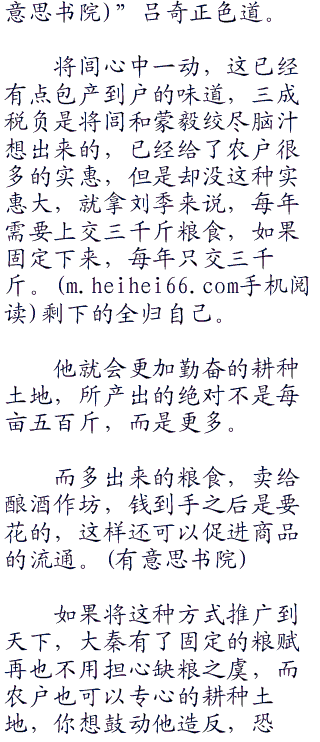 意思书院)”吕奇正色道。
将闾心中一动，这已经
有点包产到户的味道，三成
税负是将闾和蒙毅绞尽脑汁
想出来的，已经给了农户很
多的实惠，但是却没这种实
惠大，就拿刘季来说，每年
需要上交三千斤粮食，如果
固定下来，每年只交三千
斤。(m.heihei66.com手机阅
读)剩下的全归自己。
他就会更加勤奋的耕种
土地，所产出的绝对不是每
亩五百斤，而是更多。
而多出来的粮食，卖给
酿酒作坊，钱到手之后是要
花的，这样还可以促进商品
的流通。(有意思书院)
如果将这种方式推广到
天下，大秦有了固定的粮赋
再也不用担心缺粮之虞，而
农户也可以专心的耕种土
地，你想鼓动他造反，恐